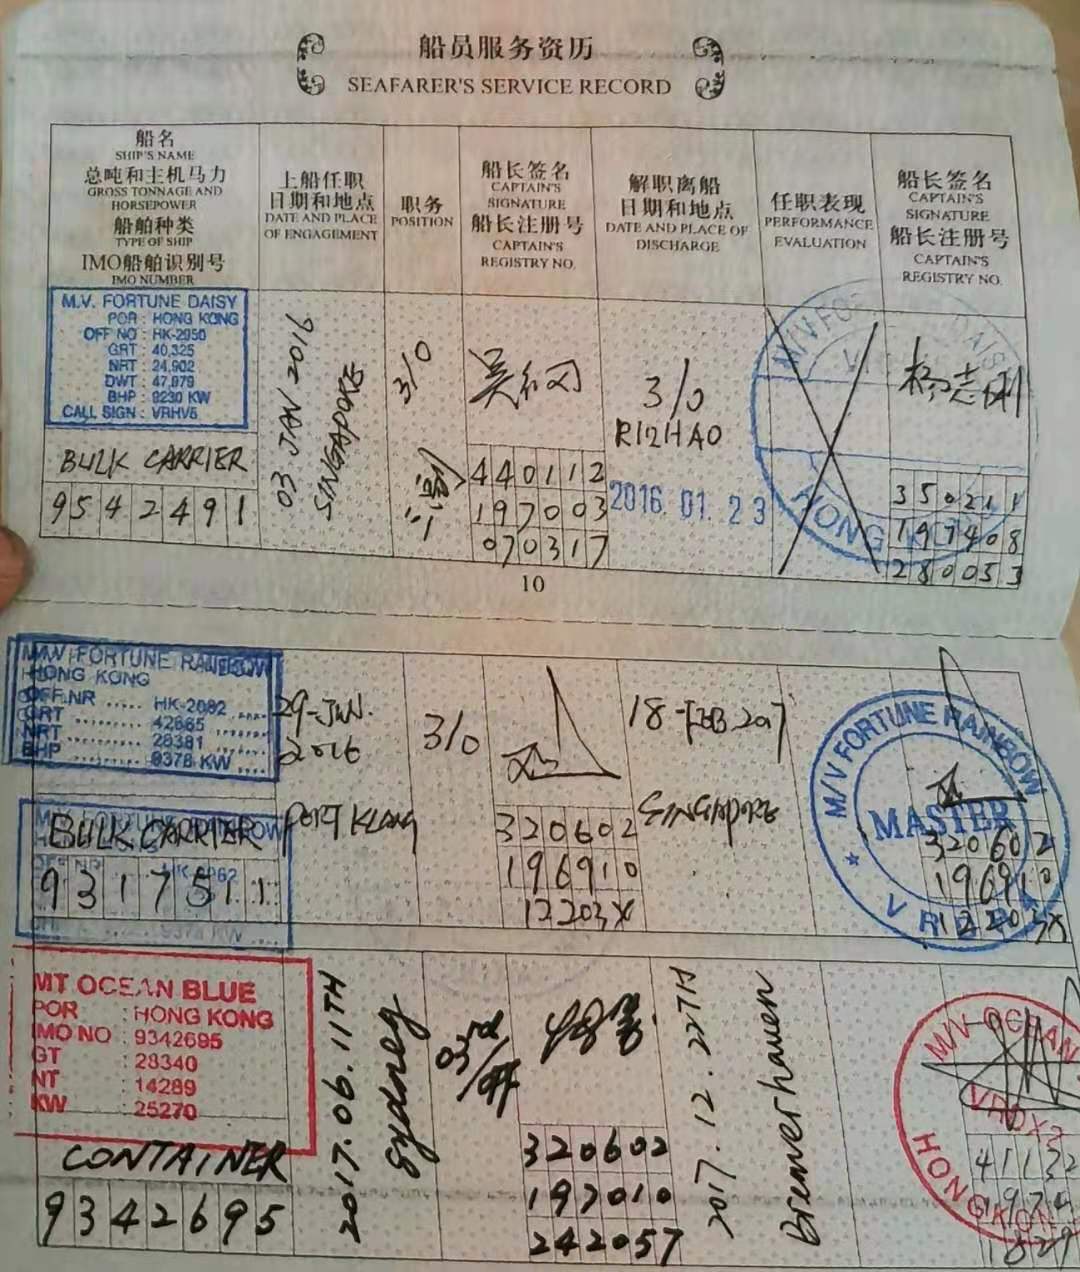 船员服务资历
SEAFARER'S SERVICE RECORD
船名
SHIP'S NAME
总吨和主机马力
GROSS TONNAGE AND
HORSEPOWER
船舶种类
TYPE OF SHIP
IMO船舶识别号
IMO NUMBER
上船任职
日期和地点
DATE AND PLACE
OF ENGAGEMENT
职务
POSITION
船长签名
CAPTAIN'S
SIGNATURE
船长注册号
CAPTAIN'S
REGISTRY NO.
解职离船
日期和地点
DATE AND PLACE OF
DISCHARGE
任职表现
PERFORMANCE
EVALUATION
船长签名
CAPTAIN'S
SIGNATURE
船长注册号
CAPTAIN'S
REGISTRY NO.
M.V. FORTUNE DAISY
POR : HONG KONG
OFF NO : HK-2950
GRT : 40,325
NRT : 24,902
DWT : 47,979
BHP : 9230 KW
CALL SIGN : VRHV5
BULK CARRIER
9542491
03 JAN 2016
SINGAPORE
3/0
440112
197003
070317
3/0
RIZHAO
2016.01.23
350211
197408
280053
10
M/V FORTUNE RAINBOW
HONG KONG
OFF.NR ..... HK-2082 ....
GRT ......... 42665 .......
NRT ......... 26381 .......
BHP ......... 9378 KW ....
BULK CARRIER
9317511
29-JUN.
2016
PORT KLANG
3/0
320602
196910
12203X
18-FEB 2017
SINGAPORE
M/V FORTUNE RAINBOW
MASTER
320602
196910
12203X
MT OCEAN BLUE
POR : HONG KONG
IMO NO : 9342695
GT : 28340
NT : 14289
KW : 25270
CONTAINER
9342695
2017.06.11TH
Sydney
320602
197010
242057
2017.12.22TH
Bremerhaven
M/V OCEAN
HONG KON